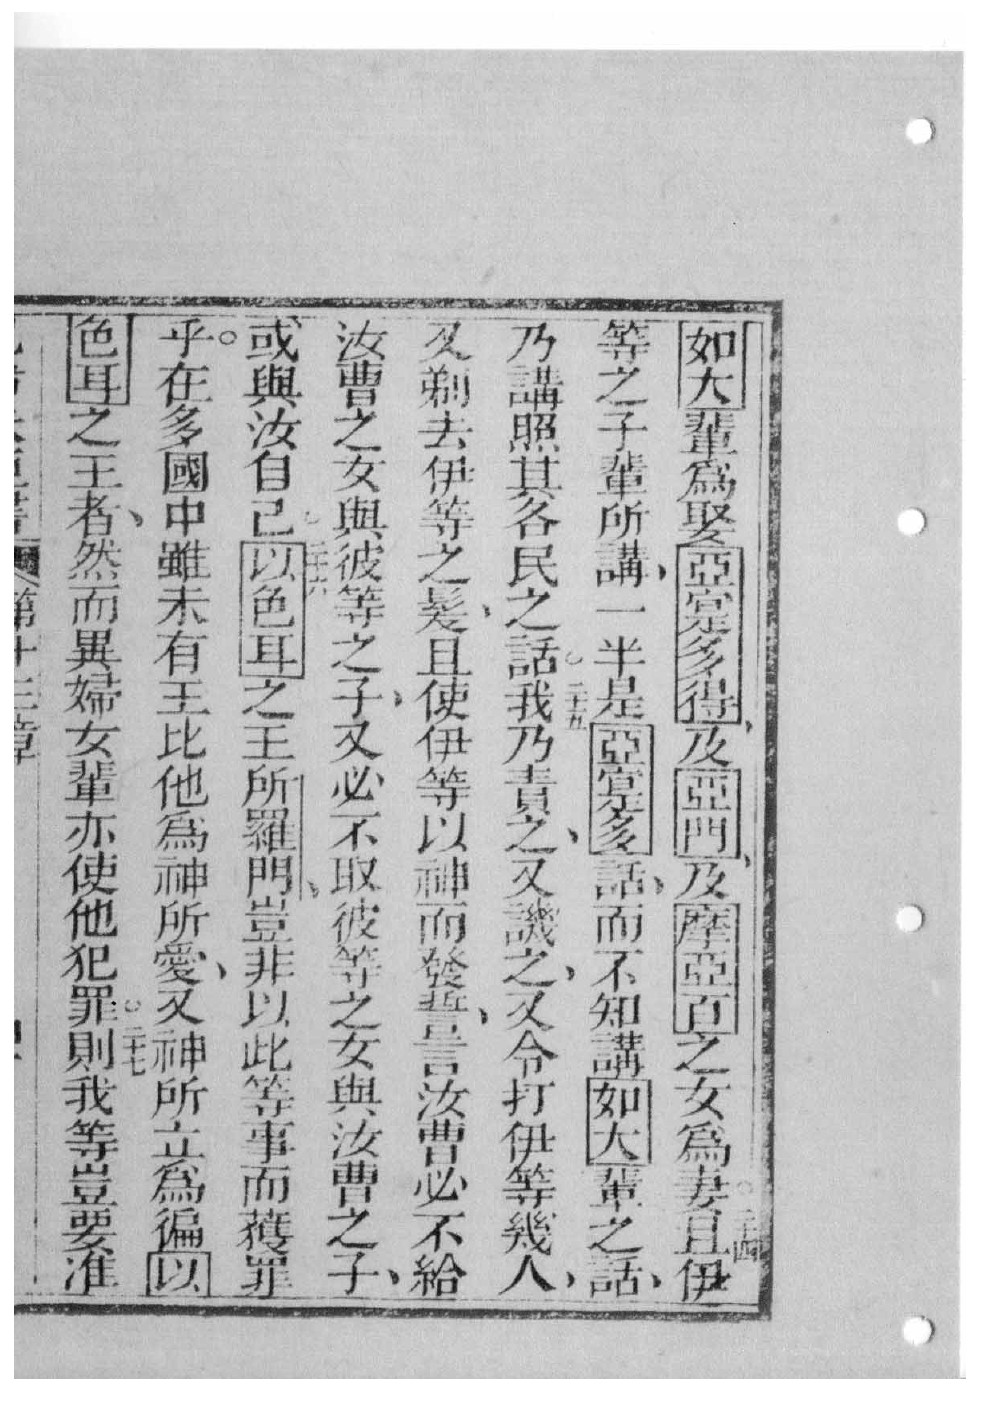 如大輩爲娶亞寔多得、及亞門、及摩亞百之女爲妻○二十四且伊
等之子輩所講、一半是亞寔多話、而不知講如大輩之話、
乃講照其各民之話○二十五我乃責之、又譏之、又令打伊等幾人、
又剃去伊等之髮、且使伊等以神而發誓、言汝曹必不給
汝曹之女與彼等之子、又必不取彼等之女與汝曹之子、
或與汝自己○二十六以色耳之王所羅門、豈非以此等事而獲罪
乎○在多國中雖未有王比他爲神所愛、又神所立爲徧以
色耳之王者、然而異婦女輩亦使他犯罪○二十七則我等豈要准
第十三章